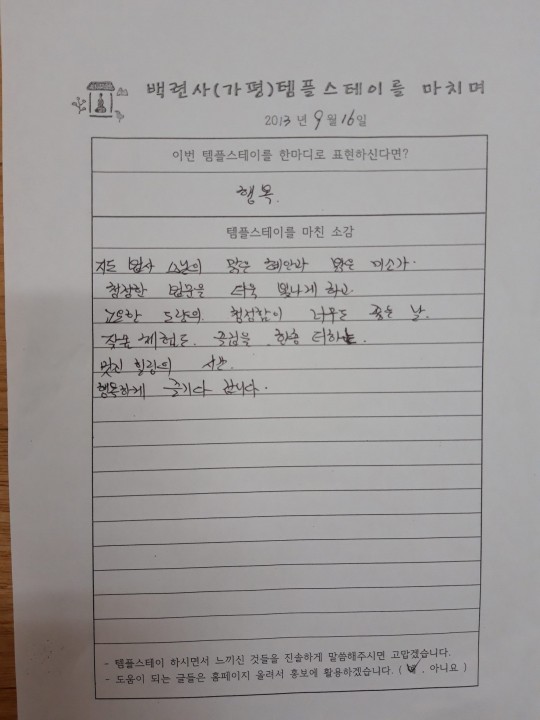 백련사(가평)템플스테이를 마치며
2013 년 9 월 16 일
이번 템플스테이를 한마디로 표현하신다면?
행복.
템플스테이를 마친 소감
지도 법사 스님의 맑은 혜안과 밝은 미소가.
청정한 법문을 더욱 빛나게 하고.
고요한 도량의. 청정함이 너무도 좋은 날.
작은 체험도. 즐거움을 한층 더하는
멋진 힐링의 시간.
행복하게 즐기다 갑니다.
- 템플스테이 하시면서 느끼신 것들을 진솔하게 말씀해주시면 고맙겠습니다.
- 도움이 되는 글들은 홈페이지 올려서 홍보에 활용하겠습니다. ( , 아니요 )